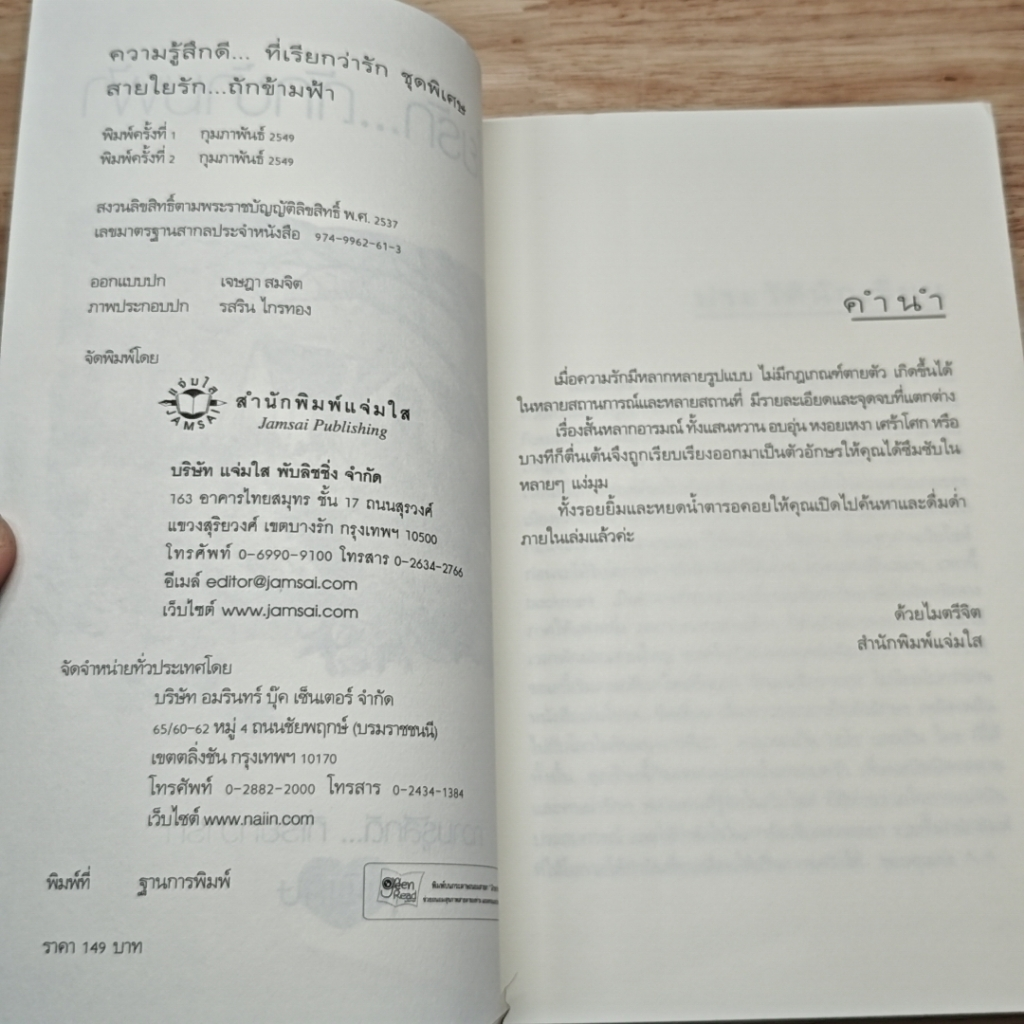 ความรู้สึกดี... ที่เรียกว่ารัก ชุดพิเศษ
สายใยรัก...ถักข้ามฟ้า
พิมพ์ครั้งที่ 1 กุมภาพันธ์ 2549
พิมพ์ครั้งที่ 2 กุมภาพันธ์ 2549
สงวนลิขสิทธิ์ตามพระราชบัญญัติลิขสิทธิ์ พ.ศ. 2537
เลขมาตรฐานสากลประจำหนังสือ 974-9962-61-3
ออกแบบปก เจษฎา สมจิต
ภาพประกอบปก รสริน ไกรทอง
จัดพิมพ์โดย
แจ่มใส
JAMSAI
สำนักพิมพ์แจ่มใส
Jamsai Publishing
บริษัท แจ่มใส พับลิชชิ่ง จำกัด
163 อาคารไทยสมุทร ชั้น 17 ถนนสุรวงศ์
แขวงสุริยวงศ์ เขตบางรัก กรุงเทพฯ 10500
โทรศัพท์ 0-6990-9100 โทรสาร 0-2634-2766
อีเมล์ editor@jamsai.com
เว็บไซต์ www.jamsai.com
จัดจำหน่ายทั่วประเทศโดย
บริษัท อมรินทร์ บุ๊ค เซ็นเตอร์ จำกัด
65/60-62 หมู่ 4 ถนนชัยพฤกษ์ (บรมราชชนนี)
เขตตลิ่งชัน กรุงเทพฯ 10170
โทรศัพท์ 0-2882-2000 โทรสาร 0-2434-1384
เว็บไซต์ www.naiin.com
พิมพ์ที่ ฐานการพิมพ์
Green
Read
ราคา 149 บาท
คำนำ
เมื่อความรักมีหลากหลายรูปแบบ ไม่มีกฎเกณฑ์ตายตัว เกิดขึ้นได้
ในหลายสถานการณ์และหลายสถานที่ มีรายละเอียดและจุดจบที่แตกต่าง
เรื่องสั้นหลากอารมณ์ ทั้งแสนหวาน อบอุ่น หงอยเหงา เศร้าโศก หรือ
บางทีก็ตื่นเต้นจึงถูกเรียบเรียงออกมาเป็นตัวอักษรให้คุณได้ซึมซับใน
หลายๆ แง่มุม
ทั้งรอยยิ้มและหยดน้ำตารอคอยให้คุณเปิดไปค้นหาและดื่มด่ำ
ภายในเล่มแล้วค่ะ
ด้วยไมตรีจิต
สำนักพิมพ์แจ่มใส